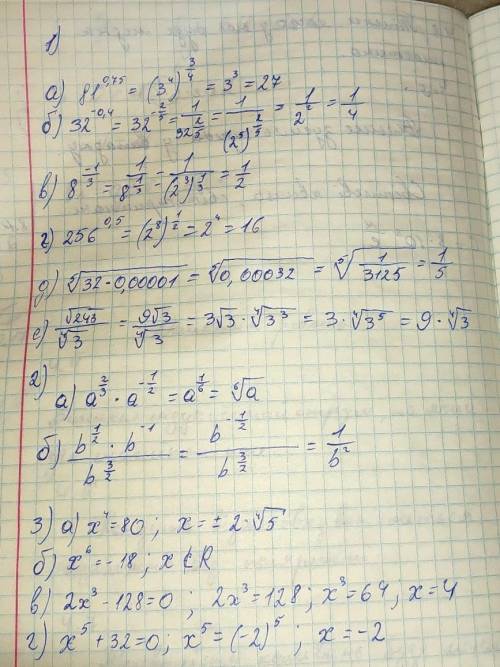 1)
а) 81^0,75 = (3^4)^(3/4) = 3^3 = 27
б) 32^-0,4 = 32^(-2/5) = 1/32^(2/5) = 1/(2^5)^(2/5) = 1/2^2 = 1/4
в) 8^(-1/3) = 1/8^(1/3) = 1/(2^3)^(1/3) = 1/2
г) 256^0,5 = (2^8)^(1/2) = 2^4 = 16
д) ⁵√(32 · 0,00001) = ⁵√0,00032 = ⁵√(1/3125) = 1/5
е) √243/⁴√3 = 9√3/⁴√3 = 3√3 · ⁴√3^3 = 3 · ⁴√3^5 = 9 · ⁴√3
2)
а) a^(2/3) · a^(-1/2) = a^(1/6) = ⁶√a
б) (b^(1/2) · b^-1)/b^(3/2) = b^(-1/2)/b^(3/2) = 1/b^2
3) а) x^4 = 80; x = ± 2 · ⁴√5
б) x^6 = -18; x ∉ R
в) 2x^3 - 128 = 0; 2x^3 = 128; x^3 = 64; x = 4
г) x^5 + 32 = 0; x^5 = (-2)^5; x = -2